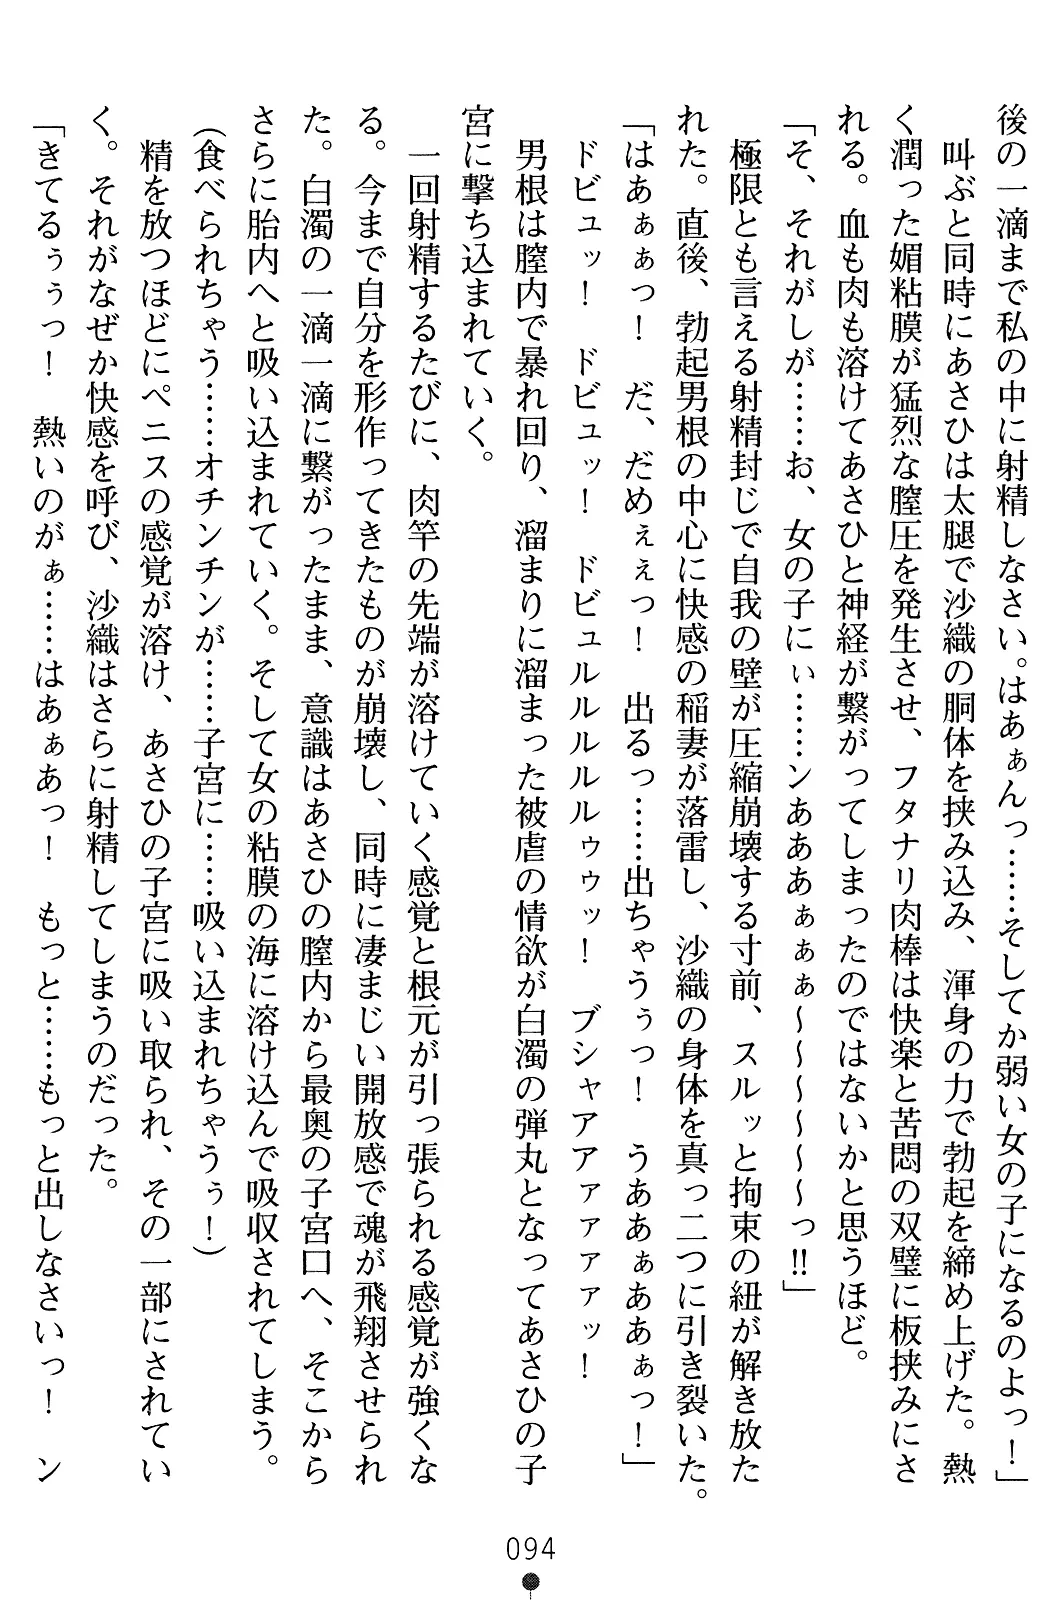 後の一滴まで私の中に射精しなさい。はあぁんっ……そしてか弱い女の子になるのよっ！」
叫ぶと同時にあさひは太腿で沙織の胴体を挟み込み、渾身の力で勃起を締め上げた。熱
く潤った媚粘膜が猛烈な膣圧を発生させ、フタナリ肉棒は快楽と苦悶の双璧に板挟みにさ
れる。血も肉も溶けてあさひと神経が繋がってしまったのではないかと思うほど。
「そ、それがしが……お、女の子にぃ……ンあああぁぁぁ～～～～～～っ!!」
極限とも言える射精封じで自我の壁が圧縮崩壊する寸前、スルッと拘束の紐が解き放た
れた。直後、勃起男根の中心に快感の稲妻が落雷し、沙織の身体を真っ二つに引き裂いた。
「はあぁぁっ！　だ、だめぇぇっ！　出るっ……出ちゃうぅっ！　うああぁああぁっ！」
ドビュッ！　ドビュッ！　ドビュルルルルゥゥッ！　ブシャアアァァァァッ！
男根は膣内で暴れ回り、溜まりに溜まった被虐の情欲が白濁の弾丸となってあさひの子
宮に撃ち込まれていく。
一回射精するたびに、肉竿の先端が溶けていく感覚と根元が引っ張られる感覚が強くな
る。今まで自分を形作ってきたものが崩壊し、同時に凄まじい開放感で魂が飛翔させられ
た。白濁の一滴一滴に繋がったまま、意識はあさひの膣内から最奥の子宮口へ、そこから
さらに胎内へと吸い込まれていく。そして女の粘膜の海に溶け込んで吸収されてしまう。
（食べられちゃう……オチンチンが……子宮に……吸い込まれちゃうぅ！）
精を放つほどにペニスの感覚が溶け、あさひの子宮に吸い取られ、その一部にされてい
く。それがなぜか快感を呼び、沙織はさらに射精してしまうのだった。
「きてるぅぅっ！　熱いのがぁ……はあぁあっ！　もっと……もっと出しなさいっ！　ン
094